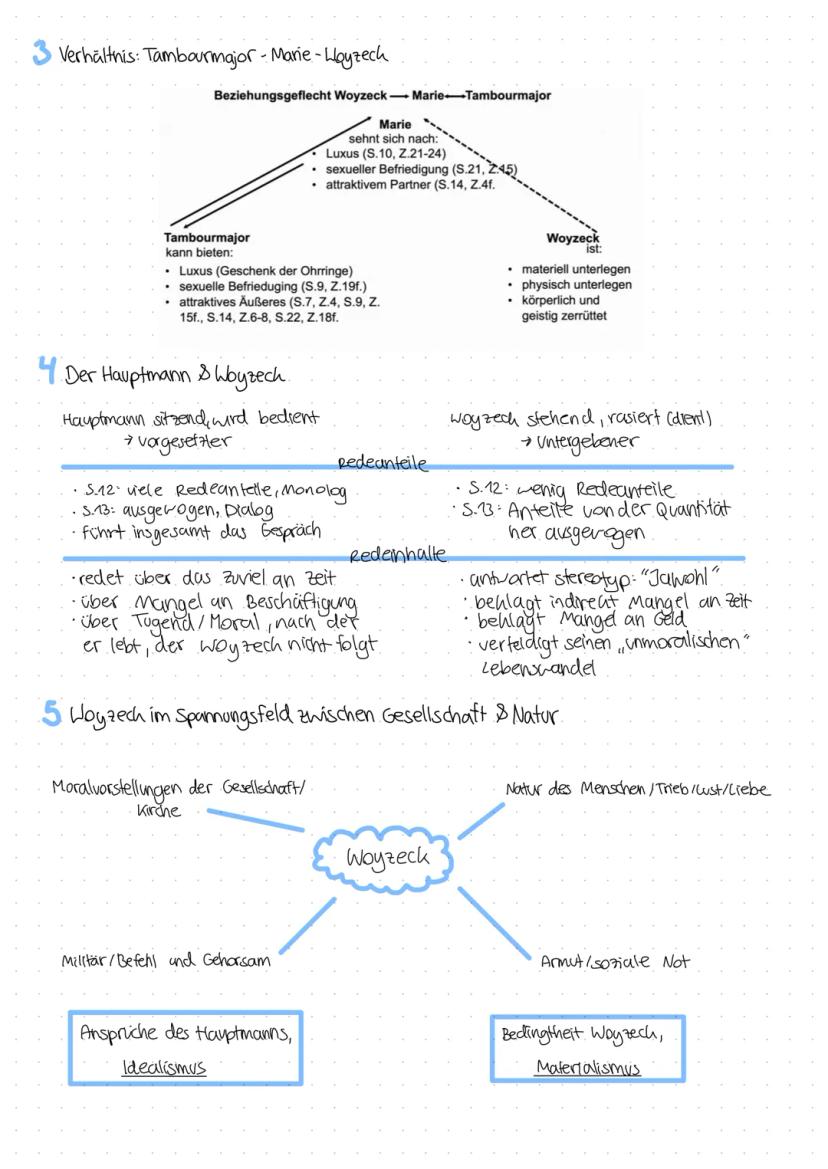 3 Verhältnis: Tambourmajor - Marie - Woyzeck
Beziehungsgeflecht Woyzeck → Marie ↔ Tambourmajor
Marie
sehnt sich nach:
• Luxus (S.10, Z.21-24)
• sexueller Befriedigung (S.21, Z.15)
• attraktivem Partner (S.14, Z.4f.
Tambourmajor
kann bieten:
• Luxus (Geschenk der Ohrringe)
• sexuelle Befrieduging (S.9, Z.19f.)
• attraktives Äußeres (S.7, Z.4, S.9, Z.
15f., S.14, Z.6-8, S.22, Z.18f.
Woyzeck
ist:
• materiell unterlegen
• physisch unterlegen
• körperlich und
geistig zerrüttet
4 Der Hauptmann & Woyzeck
Hauptmann sitzend, wird bedient
→ Vorgesetzter
Woyzeck stehend, rasiert (dient)
→ Untergebener
Redeanteile
· S.12: viele Redeanteile, Monolog
· S.13: ausgewogen, Dialog
· führt insgesamt das Gespräch
· S.12: wenig Redeanteile
· S.13: Anteile von der Quantität
her ausgewogen
Redeinhalte
· redet über das zuviel an Zeit
· über Mangel an Beschäftigung
· über Tugend/Moral, nach der
er lebt, der Woyzeck nicht folgt
· antwortet stereotyp: "Jawohl"
· beklagt indirekt Mangel an Zeit
· beklagt Mangel an Geld
· verteidigt seinen „unmoralischen"
Lebenswandel
5 Woyzeck im Spannungsfeld zwischen Gesellschaft & Natur
Moralvorstellungen der Gesellschaft/
Kirche
Natur des Menschen/Trieb/Lust/Liebe
Woyzeck
Militär/Befehl und Gehorsam
Armut/soziale Not
Ansprüche des Hauptmanns,
Idealismus
Bedingtheit Woyzeck,
Materialismus